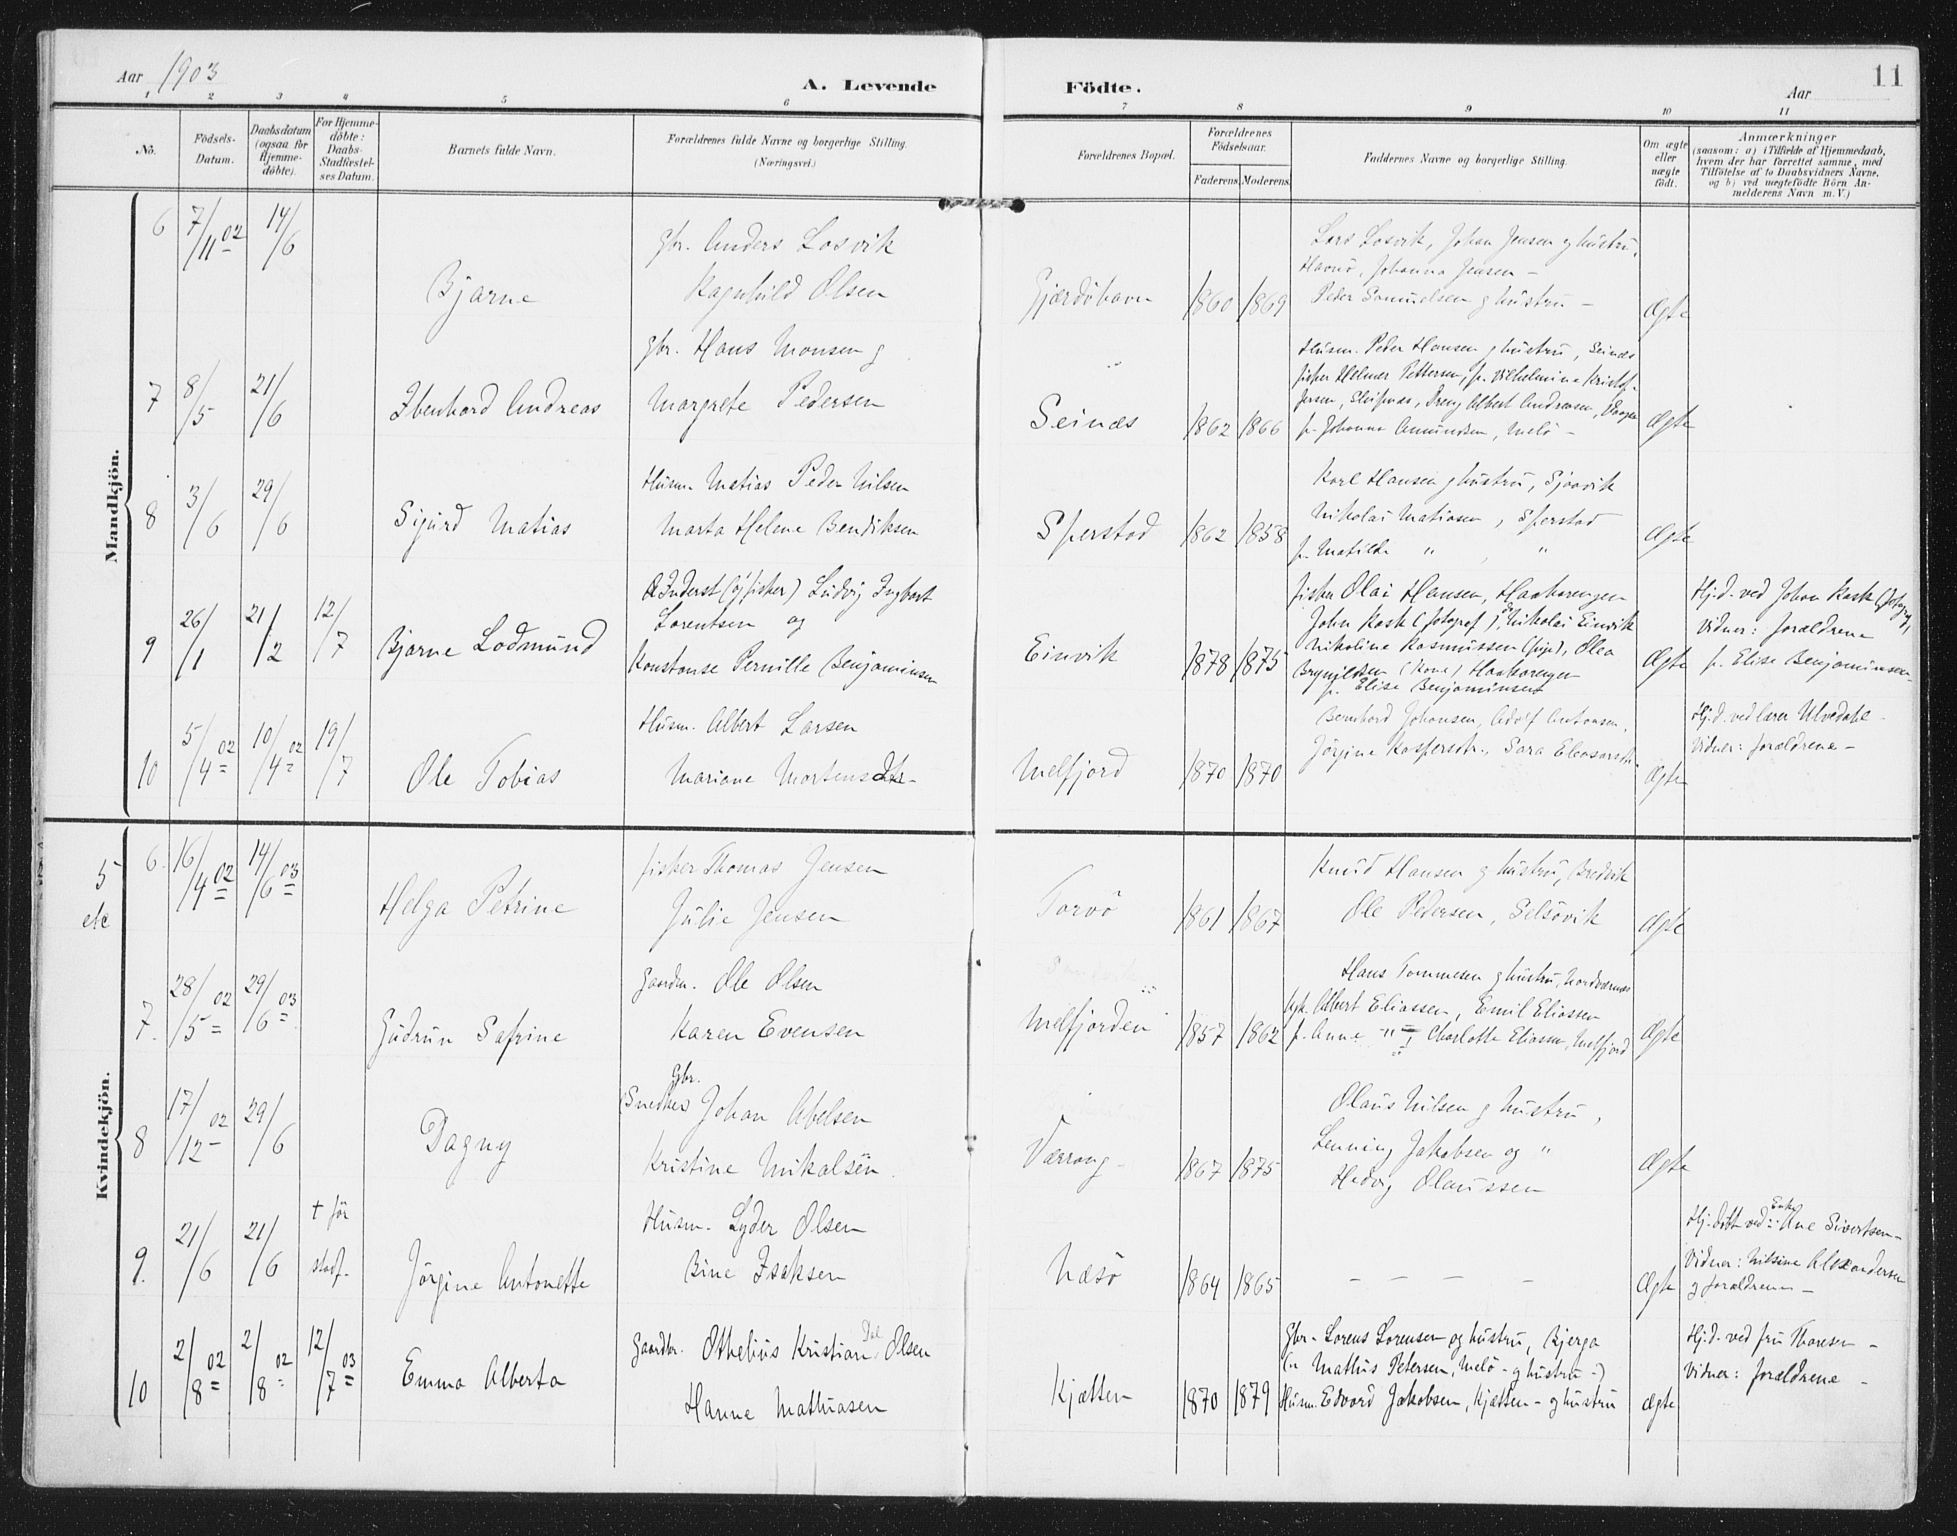 Aar 1903
A. Levende Födte.
Aar
11
1 2 3 4 5 6 7 8 9 10 11
No.
Födsels-Datum.
Daabsdatum (ogsaa for Hjemme-döbte).
For Hjemme-döbte: Daabs-Stadfæstel-ses Datum.
Barnets fulde Navn.
Forældrenes fulde Navne og borgerlige Stilling. (Næringsvei.)
Forældrenes Bopæl.
Forældrenes Födselsaar.
Faderens. Moderens.
Faddernes Navne og borgerlige Stilling.
Om ægte eller uægte födt.
Anmærkninger
(saasom: a) i Tilfælde af Hjemmedaab, hvem der har forrettet samme, med Tilföielse af to Daabsvidners Navne, og b) ved uægtefödte Börn An-melderens Navn m. V.)
Mandkjön.
6 7/11 02 14/6
Bjarne
Gbr. Anders Losvik
Ragnhild Olsen
Gjærdöhavn 1860 1869
Lars Losvik, Johan Jensen og hustru,
Havnö, Johanna Jensen -
Peder Samuelsen og hustru -
Ægte
7 8/5 21/6
Ibenhard Andreas
Gbr. Hans Monsen og
Margrete Pedersen
Seinæs 1862 1866
Husm. Peder Hansen og hustru, Seinæs
fisker Helmer Pettersen, p. Vilhelmine Kristof-
fersen, Dreng Albert Andreasen, Vaagen
p. Johanna Amundsen, Melö -
Ægte
8 3/6 29/6
Sigurd Matias
Husm. Matias Peder Nilsen
Marta Helene Bendiksen
Sperstad 1862 1858
Karl Hansen og hustru, Sjaavik
Nikolai Matiasen, Sperstad
p. Matilde " "
Ægte
9 26/1 21/2 12/7
Bjarne Lodmund
Inderst (og fisker) Ludvig Ingbart
Lorentsen og
Konstanse Pernille Benjaminsen
Einvik 1878 1875
fisker Olai Hansen, Haakorengen
John Rask (fotograf), Nikolai Einvik
Nikoline Rasmussen (pige), Olea
Brynjildsen (Kone) Haakorengen
p. Elise Benjaminsen
Ægte
Hj.d. ved Johan Rask (fotogr.),
Vidner: forældrene
p. Elise Benjaminsen -
10 5/4 02 10/4 02 19/7
Ole Tobias
Husm. Albert Larsen
Mariane Mortensdtr -
Melfjord 1870 1870
Bernhard Johansen, Adolf Antonsen,
Jörgine Kaspersdtr., Sara Eleasarsdtr.
Ægte
Hj.d. ved lærer Ulvedahl -
Vidner: forældrene -
Kvindekjön.
5
6. 16/4 02 14/6 03
Helga Petrine
fisker Thomas Jensen
Julie Jensen
Torvö 1861 1867
Knud Hansen og hustru, Bredvik
Ole Pedersen, Selsövik
Ægte
7. 28/5 02 29/6 03
Gudrun Safrine
Gaardm. Ole Olsen
Karen Evensen
Melfjorden 1857 1862
Hans Tommesen og hustru, Nordværnes
Albert Eliassen, Emil Eliassen
p. Anna " Charlotte Eliassen, Melfjord
Ægte
8 17/12 02 29/6
Dagny
Gbr.
(Snedker) Johan Abelsen
Kristine Mikalsen.
Værrang 1867 1875
Olaus Nilsen og hustru,
Lenning Jakobsen og "
Hedvig Olaussen
Ægte
9. 21/6 21/6 † för stadf.
Jörgine Antonette
Husm. Lyder Olsen
Bine Isaksen
Næsö 1864 1865
- - - -
Ægte
Hj. döbt ved Enke Ane Sivertsen -
Vidner: Nilsine Alexandersen
og forældrene -
10 2/8 02 2/8 02 12/7 03
Emma Alberta
Gaardbr. Othelius Kristian Dal Olsen
Hanne Mathiasen
Kjætten 1870 1879
Gbr. Lorens Lorensen og hustru, Bjerga
(" Mathis Petersen, Melö - og hustru -)
Husm. Edvard Jakobsen, Kjætten - og hustru
Ægte
Hj.d. ved fru Thoresen -
Vidner: forældrene -